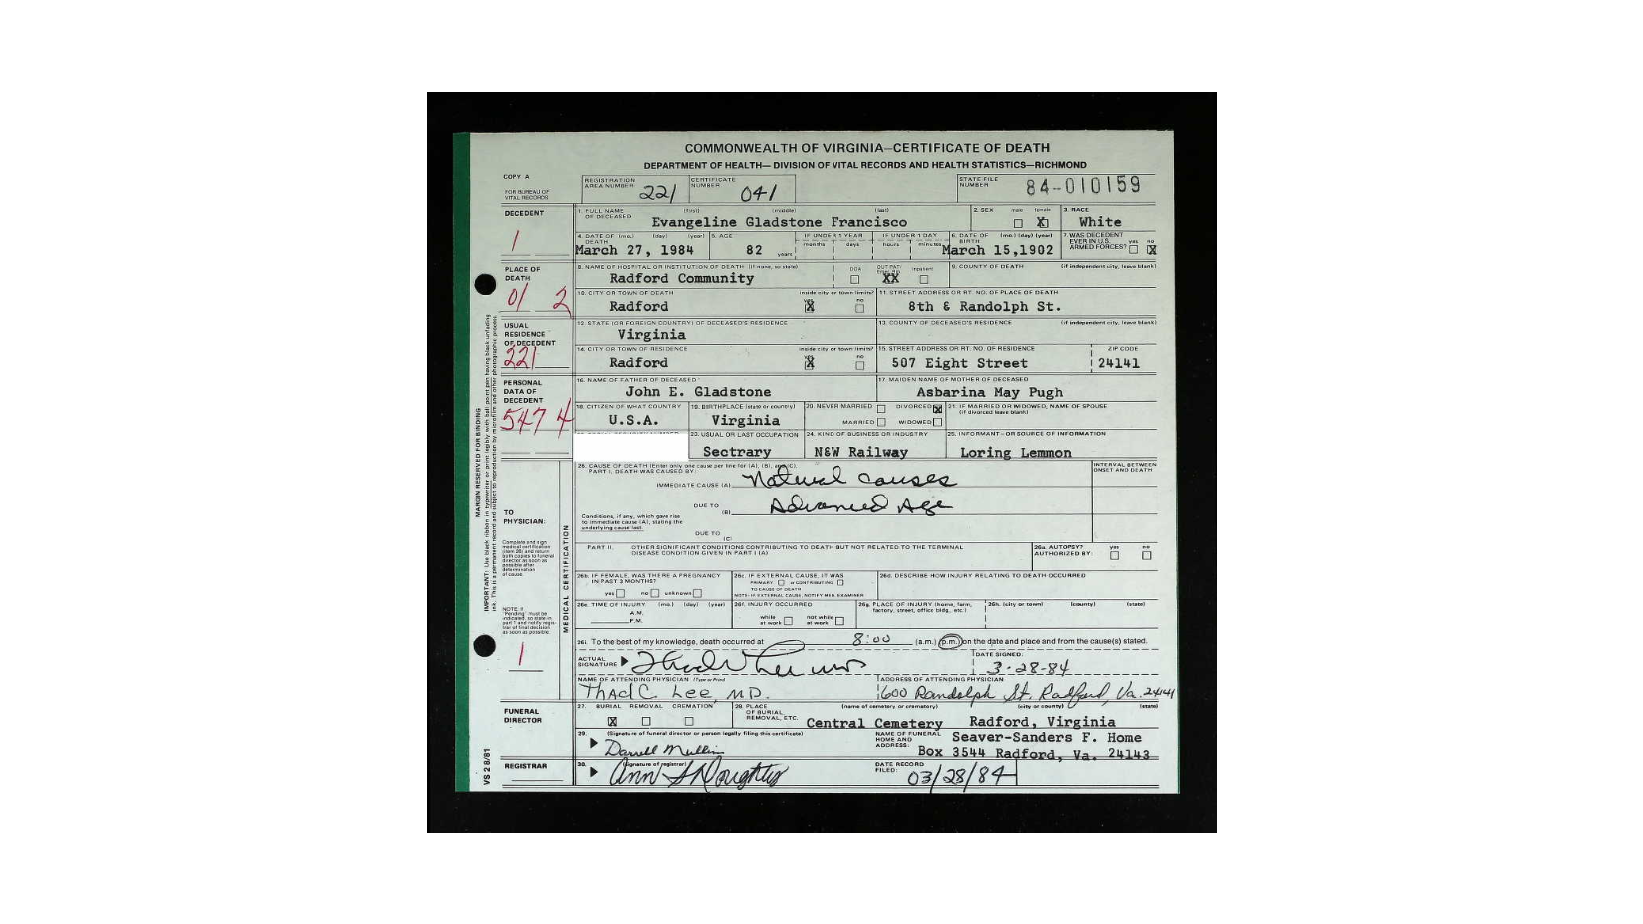 COMMONWEALTH OF VIRGINIA—CERTIFICATE OF DEATH
DEPARTMENT OF HEALTH— DIVISION OF VITAL RECORDS AND HEALTH STATISTICS—RICHMOND
COPY A
FOR BUREAU OF VITAL RECORDS
REGISTRATION AREA NUMBER 221 CERTIFICATE NUMBER 041 STATE FILE NUMBER 84-010159
DECEDENT
1
1. FULL NAME OF DECEASED (first) (middle) (last) 2. SEX male female 3. RACE
Evangeline Gladstone Francisco X White
4. DATE OF DEATH (mo.) (day) (year) 5. AGE IF UNDER 1 YEAR IF UNDER 1 DAY 6. DATE OF BIRTH (mo.) (day) (year) 7. WAS DECEDENT EVER IN U.S. ARMED FORCES? yes no
March 27, 1984 82 years months days hours minutes March 15,1902 X
PLACE OF DEATH
01 2
8. NAME OF HOSPITAL OR INSTITUTION OF DEATH (if none, so state) DOA inpatient 9. COUNTY OF DEATH (if independent city, leave blank)
Radford Community XX
10. CITY OR TOWN OF DEATH inside city or town limits? yes no 11. STREET ADDRESS OR RT. NO. OF PLACE OF DEATH
Radford X 8th & Randolph St.
USUAL RESIDENCE OF DECEDENT
221
12. STATE (OR FOREIGN COUNTRY) OF DECEASED'S RESIDENCE 13. COUNTY OF DECEASED'S RESIDENCE (if independent city, leave blank)
Virginia
14. CITY OR TOWN OF RESIDENCE inside city or town limits? yes no 15. STREET ADDRESS OR RT. NO. OF RESIDENCE ZIP CODE
Radford X 507 Eight Street 24141
PERSONAL DATA OF DECEDENT
547 4
16. NAME OF FATHER OF DECEASED 17. MAIDEN NAME OF MOTHER OF DECEASED
John E. Gladstone Asbarina May Pugh
18. CITIZEN OF WHAT COUNTRY 19. BIRTHPLACE (state or country) 20. NEVER MARRIED DIVORCED X 21. IF MARRIED OR WIDOWED, NAME OF SPOUSE (if divorced leave blank)
U.S.A. Virginia MARRIED WIDOWED
23. USUAL OR LAST OCCUPATION 24. KIND OF BUSINESS OR INDUSTRY 25. INFORMANT—OR SOURCE OF INFORMATION
Sectrary N&W Railway Loring Lemmon
26. CAUSE OF DEATH (Enter only one cause per line for (A), (B), and (C).) INTERVAL BETWEEN ONSET AND DEATH
PART I. DEATH WAS CAUSED BY:
IMMEDIATE CAUSE (A) Natural causes
DUE TO (B) Advanced Age
Conditions, if any, which gave rise to immediate cause (A), stating the underlying cause last.
DUE TO (C)
TO PHYSICIAN:
Complete and sign medical certification (item 26) and return both copies to funeral director as soon as possible after determination of cause.
MEDICAL CERTIFICATION
PART II. OTHER SIGNIFICANT CONDITIONS CONTRIBUTING TO DEATH BUT NOT RELATED TO THE TERMINAL DISEASE CONDITION GIVEN IN PART I (A) 26a. AUTOPSY? AUTHORIZED BY: yes no
26b. IF FEMALE, WAS THERE A PREGNANCY IN PAST 3 MONTHS? yes no unknown
26c. IF EXTERNAL CAUSE, IT WAS PRIMARY or CONTRIBUTING TO CAUSE OF DEATH
NOTE: IF EXTERNAL CAUSE, NOTIFY MED. EXAMINER
26d. DESCRIBE HOW INJURY RELATING TO DEATH OCCURRED
26e. TIME OF INJURY (mo.) (day) (year) A.M. P.M. 26f. INJURY OCCURRED while at work not while at work 26g. PLACE OF INJURY (home, farm, factory, street, office bldg., etc.) 26h. (city or town) (county) (state)
NOTE: If "Pending" must be indicated, so state in part I and notify registrar of final decision as soon as possible.
1
26i. To the best of my knowledge, death occurred at 8:00 (a.m.) (p.m.) on the date and place and from the cause(s) stated.
ACTUAL SIGNATURE Thad C Lee MD DATE SIGNED: 3-28-84
NAME OF ATTENDING PHYSICIAN (Type or Print) ADDRESS OF ATTENDING PHYSICIAN
Thad C. Lee, MD. 1600 Randolph St. Radford, Va. 24141
FUNERAL DIRECTOR
27. BURIAL REMOVAL CREMATION 28. PLACE OF BURIAL REMOVAL, ETC. (name of cemetery or crematory) (city or county) (state)
X Central Cemetery Radford, Virginia
29. (Signature of funeral director or person legally filing this certificate) NAME OF FUNERAL HOME AND ADDRESS: Seaver-Sanders F. Home
Darrell Mullin Box 3544 Radford, Va. 24143
REGISTRAR
30. (Signature of registrar) DATE RECORD FILED:
Ann S Doughty 03/28/84
VS 2 8/81
MARGIN RESERVED FOR BINDING
IMPORTANT: Use black ribbon in typewriter or print legibly with ball point pen having black unfading ink. This is a permanent record and subject to reproduction by microfilm and other photographic process.